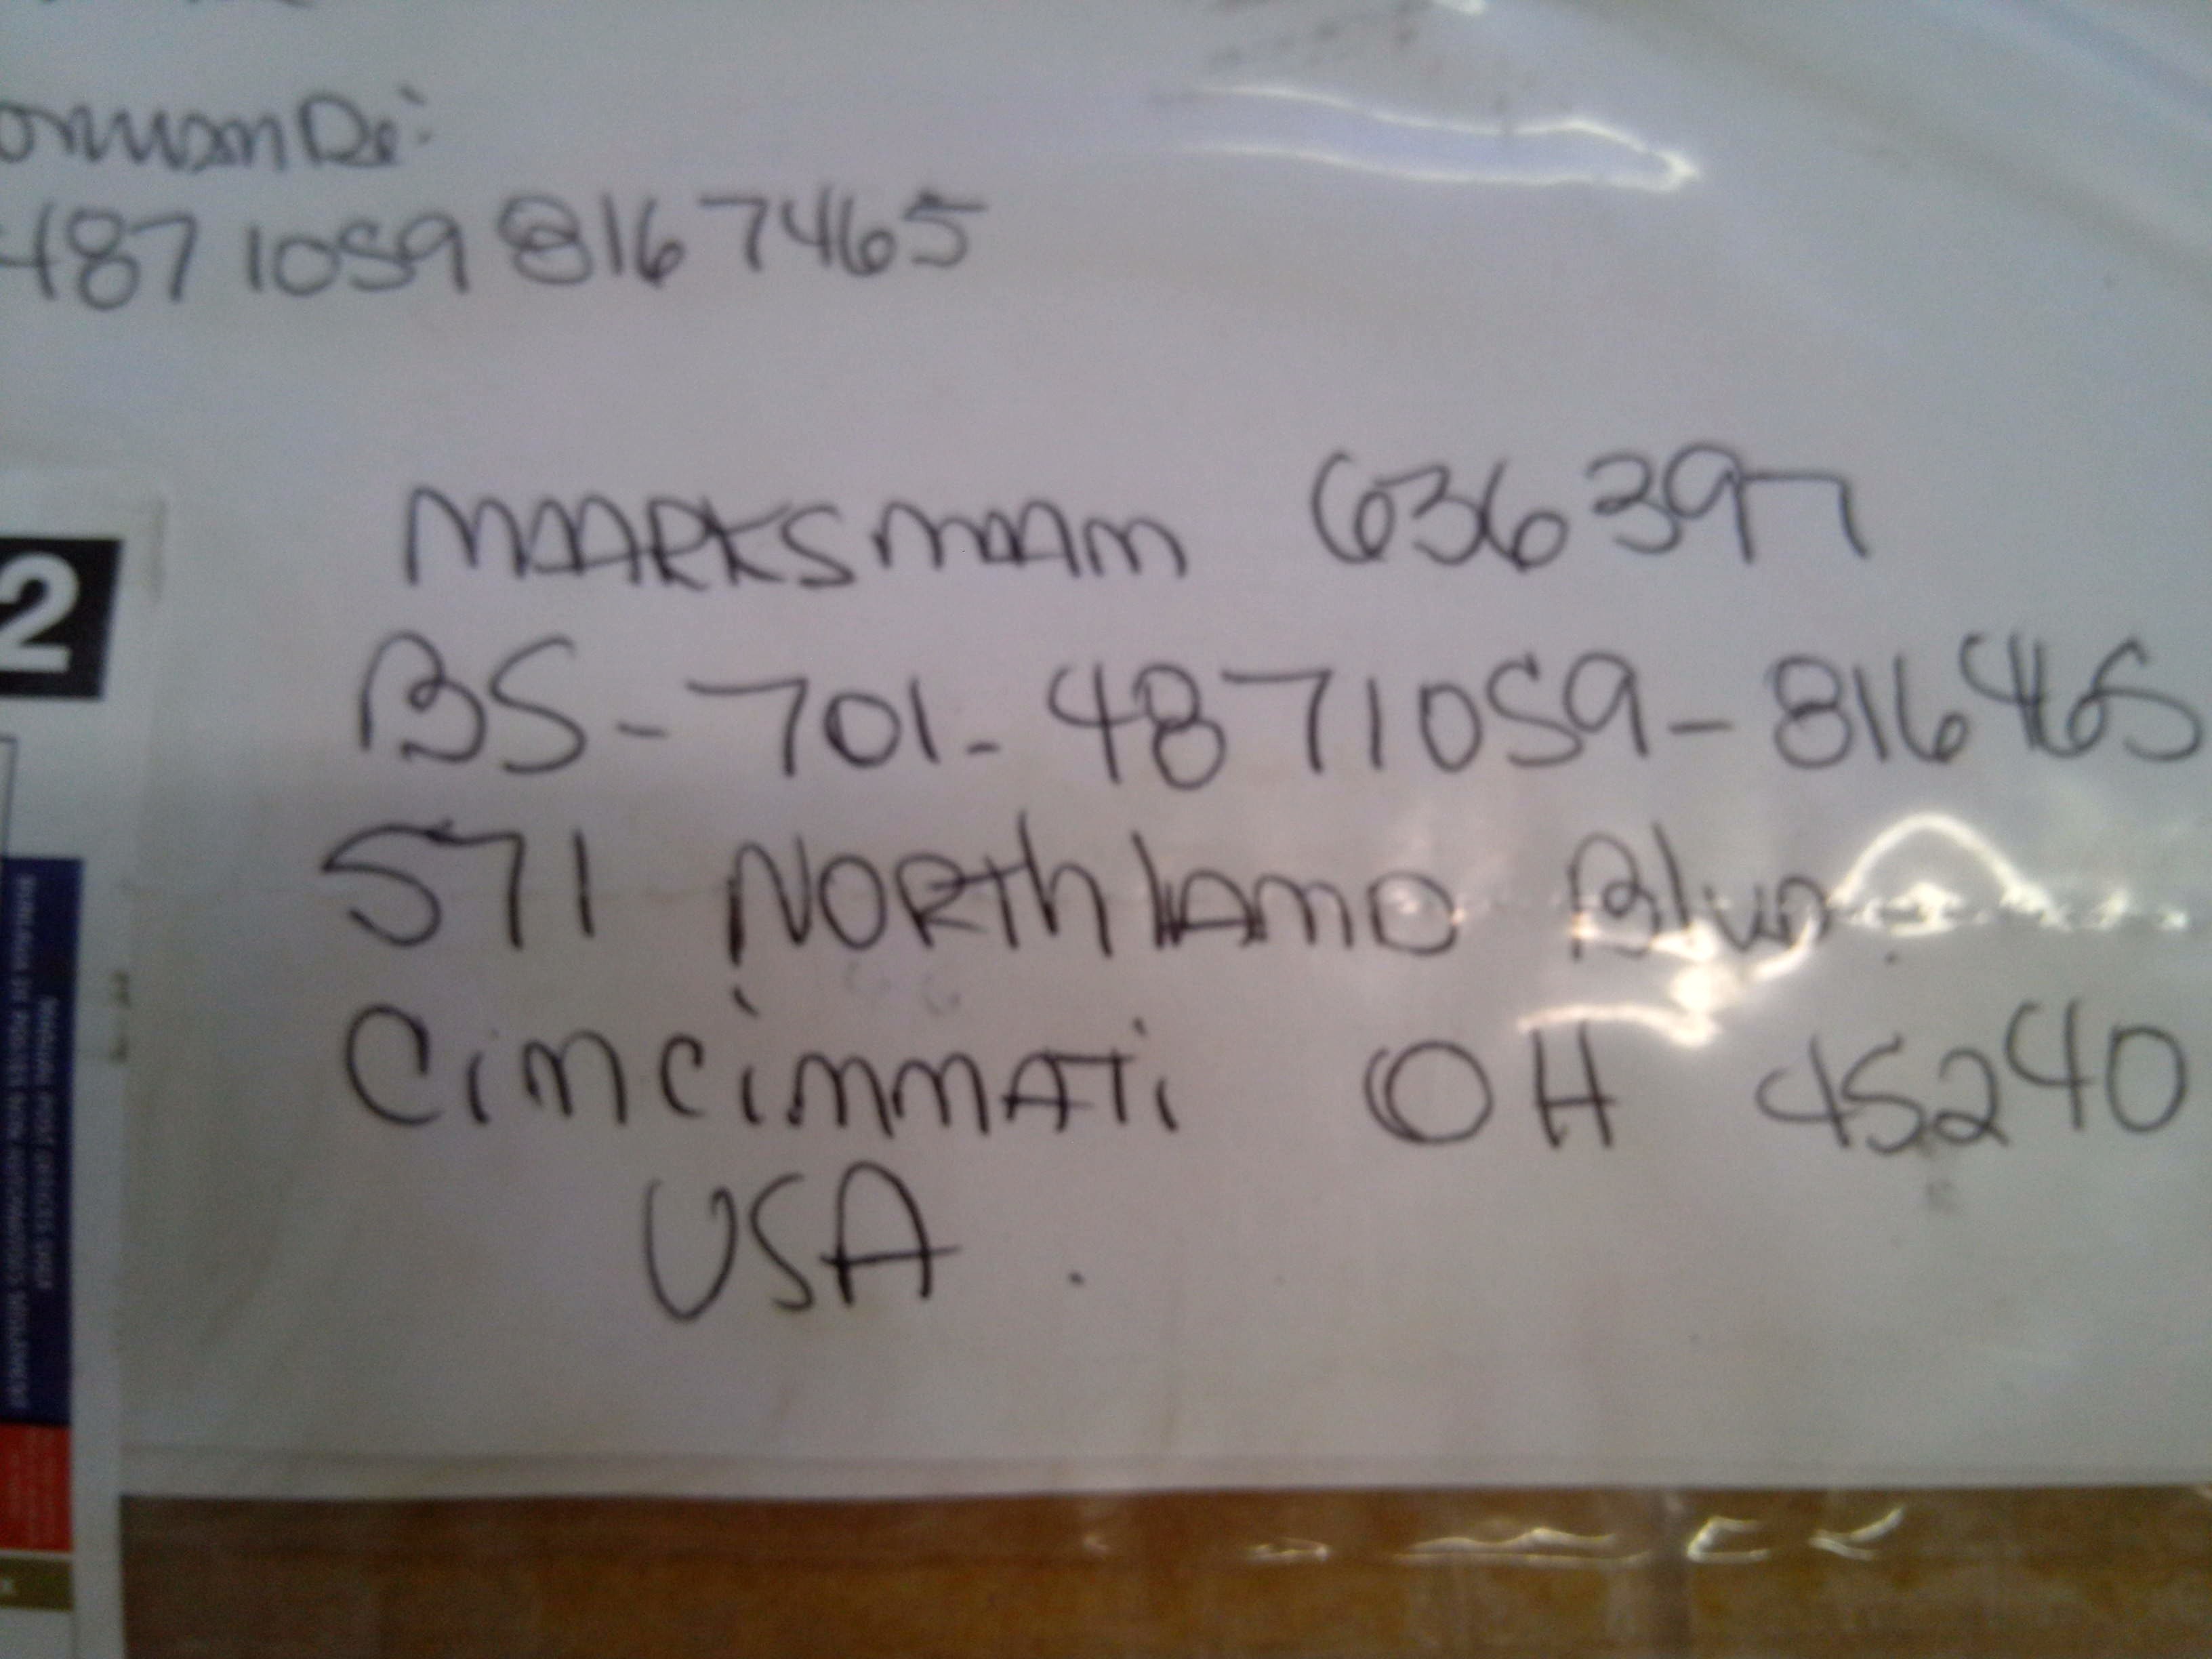 487 1059 8167465
MARKSMAN 636397
BS-701-4871059-816465
571 NORTHLAND Blvd.
CinCinnATi OH 45240
USA.
2